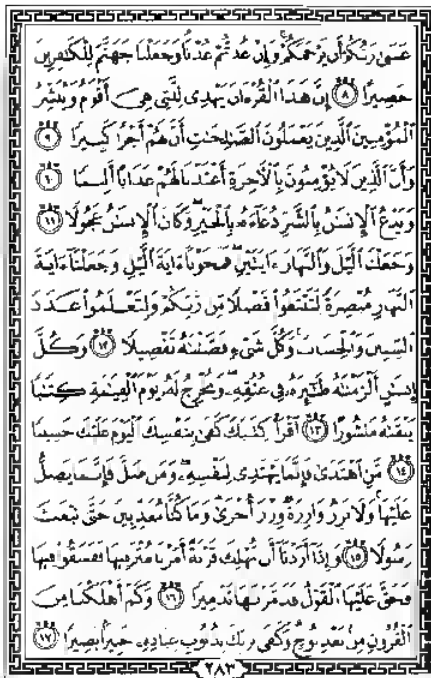 عَسَىٰ رَبُّكُمْ أَن يَرْحَمَكُمْ وَإِنْ عُدتُّمْ عُدْنَا وَجَعَلْنَا جَهَنَّمَ لِلْكَٰفِرِينَ
حَصِيرًا ٨ إِنَّ هَٰذَا ٱلْقُرْءَانَ يَهْدِى لِلَّتِى هِىَ أَقْوَمُ وَيُبَشِّرُ
ٱلْمُؤْمِنِينَ ٱلَّذِينَ يَعْمَلُونَ ٱلصَّٰلِحَٰتِ أَنَّ لَهُمْ أَجْرًا كَبِيرًا ٩
وَأَنَّ ٱلَّذِينَ لَا يُؤْمِنُونَ بِٱلْءَاخِرَةِ أَعْتَدْنَا لَهُمْ عَذَابًا أَلِيمًا ١٠
وَيَدْعُ ٱلْإِنسَٰنُ بِٱلشَّرِّ دُعَآءَهُۥ بِٱلْخَيْرِ وَكَانَ ٱلْإِنسَٰنُ عَجُولًا ١١
وَجَعَلْنَا ٱلَّيْلَ وَٱلنَّهَارَ ءَايَتَيْنِ فَمَحَوْنَآ ءَايَةَ ٱلَّيْلِ وَجَعَلْنَآ ءَايَةَ
ٱلنَّهَارِ مُبْصِرَةً لِّتَبْتَغُوا۟ فَضْلًا مِّن رَّبِّكُمْ وَلِتَعْلَمُوا۟ عَدَدَ
ٱلسِّنِينَ وَٱلْحِسَابَ وَكُلَّ شَىْءٍ فَصَّلْنَٰهُ تَفْصِيلًا ١٢ وَكُلَّ
إِنسَٰنٍ أَلْزَمْنَٰهُ طَٰٓئِرَهُۥ فِى عُنُقِهِۦ وَنُخْرِجُ لَهُۥ يَوْمَ ٱلْقِيَٰمَةِ كِتَٰبًا
يَلْقَىٰهُ مَنشُورًا ١٣ ٱقْرَأْ كِتَٰبَكَ كَفَىٰ بِنَفْسِكَ ٱلْيَوْمَ عَلَيْكَ حَسِيبًا
١٤ مَّنِ ٱهْتَدَىٰ فَإِنَّمَا يَهْتَدِى لِنَفْسِهِۦ وَمَن ضَلَّ فَإِنَّمَا يَضِلُّ
عَلَيْهَا وَلَا تَزِرُ وَازِرَةٌ وِزْرَ أُخْرَىٰ وَمَا كُنَّا مُعَذِّبِينَ حَتَّىٰ نَبْعَثَ
رَسُولًا ١٥ وَإِذَآ أَرَدْنَآ أَن نُّهْلِكَ قَرْيَةً أَمَرْنَا مُتْرَفِيهَا فَفَسَقُوا۟ فِيهَا
فَحَقَّ عَلَيْهَا ٱلْقَوْلُ فَدَمَّرْنَٰهَا تَدْمِيرًا ١٦ وَكَمْ أَهْلَكْنَا مِنَ
ٱلْقُرُونِ مِنۢ بَعْدِ نُوحٍ وَكَفَىٰ بِرَبِّكَ بِذُنُوبِ عِبَادِهِۦ خَبِيرًۢا بَصِيرًا ١٧
٢٨٣